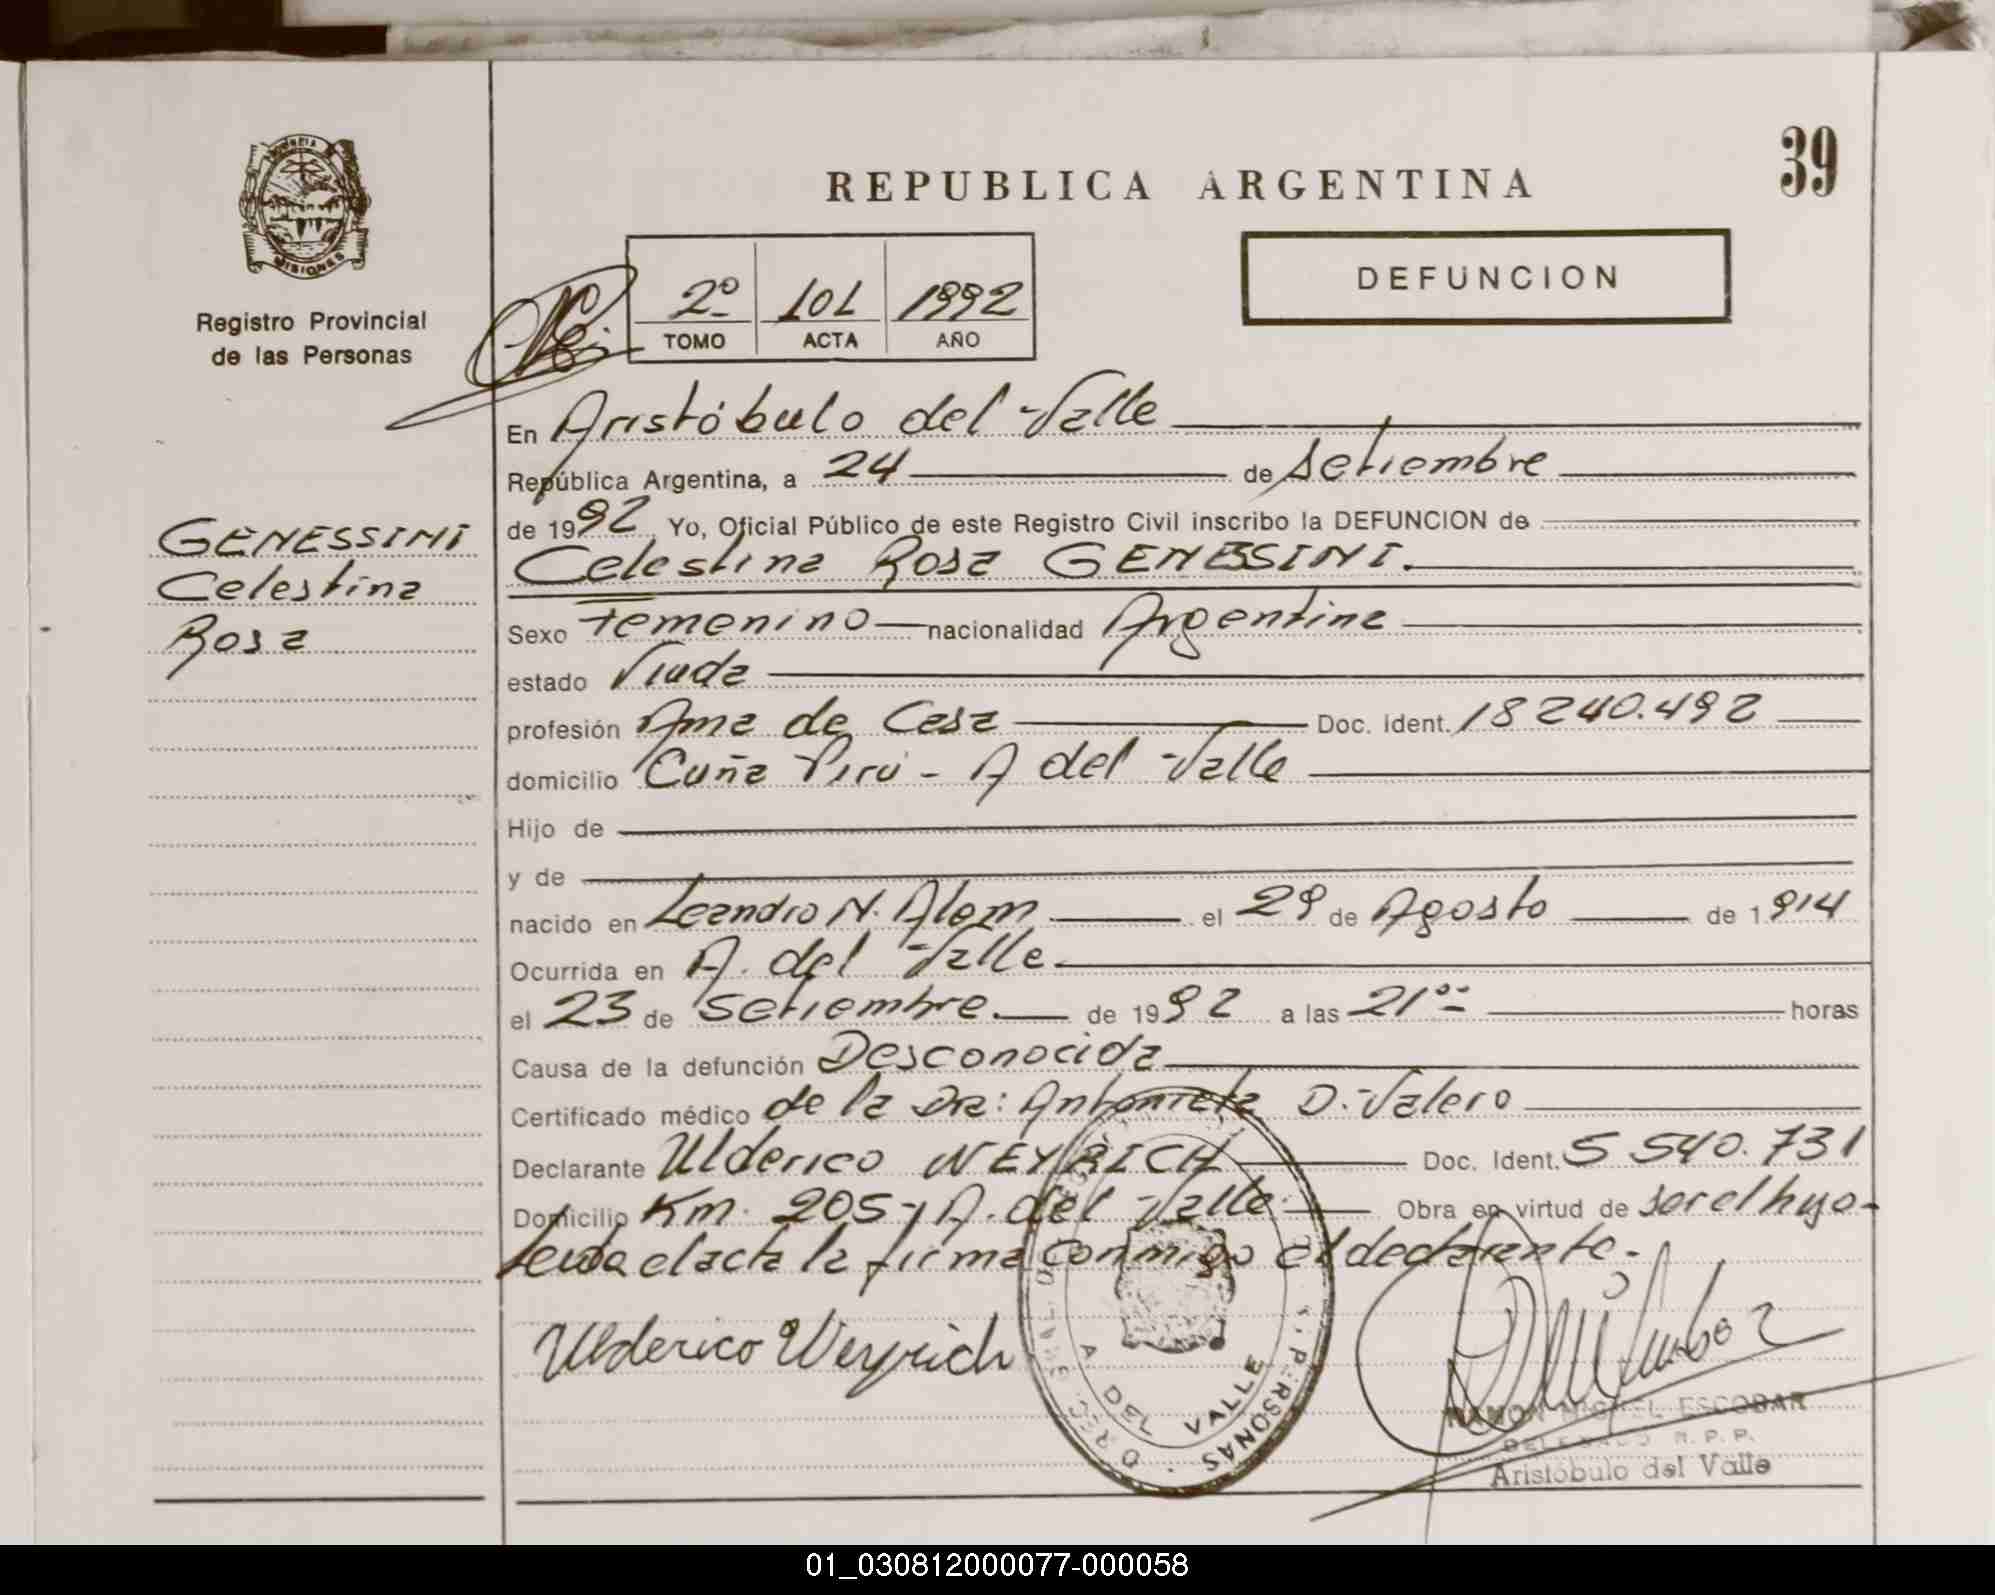 PROVINCIA DE
MISIONES
Registro Provincial
de las Personas
GENESSINI
Celestina
Rosa
39
REPUBLICA ARGENTINA
2º 101 1992
TOMO ACTA AÑO
DEFUNCION
En Aristóbulo del Valle
República Argentina, a 24 de setiembre
de 1992, Yo, Oficial Público de este Registro Civil inscribo la DEFUNCION de
Celestina Rosa GENESSINI.
Sexo Femenino nacionalidad Argentina
estado Viuda
profesión Ama de Casa Doc. Ident. 18240.492
domicilio Cuña Pirú - A del Valle
Hijo de
y de
nacido en Leandro N. Alem el 29 de Agosto de 1914
Ocurrida en A. del Valle.
el 23 de Setiembre. de 1992 a las 21°° horas
Causa de la defunción Desconocida
Certificado médico de la Dra: Antonieta D. Valero
Declarante Ulderico WEYRICH Doc. Ident. 5 540.731
Domicilio Km. 205-A. del Valle. Obra en virtud de ser el hijo-
Leida el acta la firma conmigo el declarante.
Ulderico Weyrich
A DEL VALLE
PERSONAS
RAMON MIGUEL ESCOBAR
DELEGADO R. P. P.
Aristóbulo del Valle
01_030812000077-000058